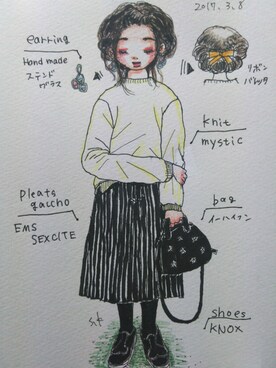 2017.3.8
earring
Hand made
ステンド
グラス
リボン
バレッタ
knit
mystic
Pleats
gaucho
EMS
SEXCITE
bag
イーハイフン
shoes
KNOX